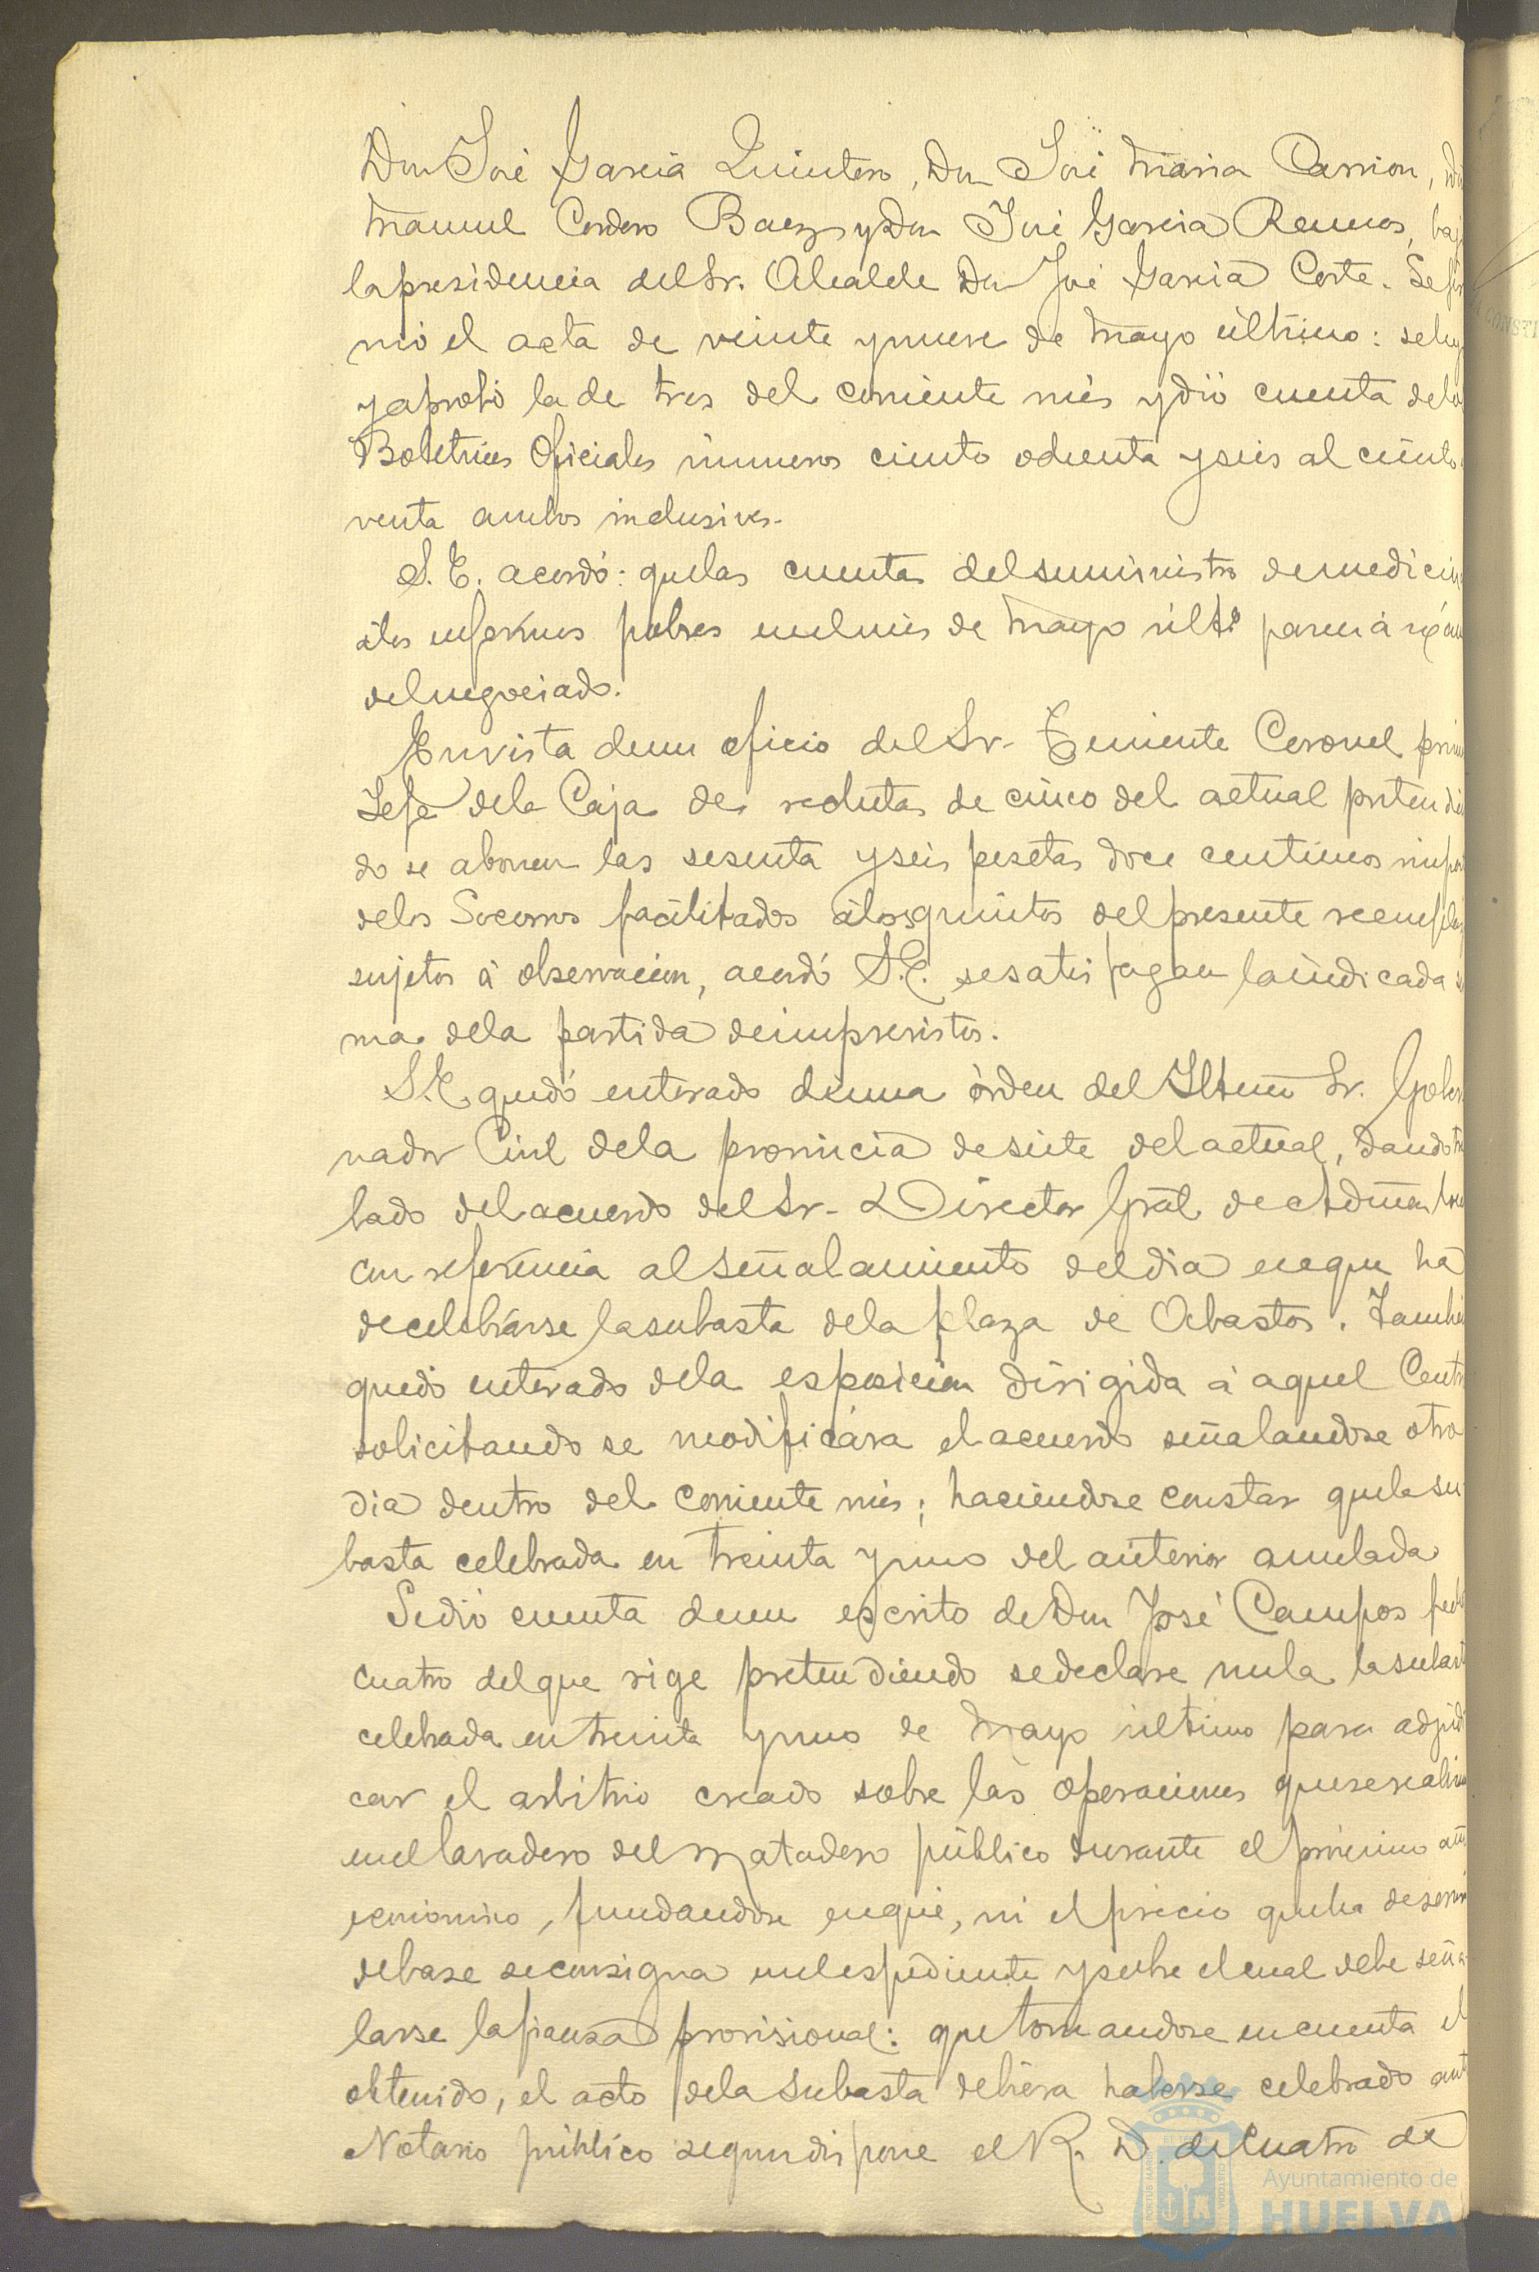 Don José Garcia Quintero, Don José Maria Carrion, Don
Manuel Cordero Baez y Don José Garcia Ramos, baj
la presidencia del Sr. Alcalde Don José Garcia Corte. Se fir
mó el acta de veinte y nueve de Mayo último: se ley
y aprobó la de tres del corriente mes y dió cuenta de los
Boletines Oficiales números ciento ochenta y seis al ciento
venta ambos inclusives.
S. E. acordó: que las cuentas del suministro de medicin
á los enfermos pobres en el mes de Mayo últº pasen á exám
del negociado.
En vista de un oficio del Sr. Teniente Coronel prim
Jefe de la Caja de reclutas de cinco del actual pretendien
do se abonen las sesenta y seis pesetas doce centimos impor
de los Socorros facilitados á los quintos del presente reempla
sujetos á observacion, acordó S. E. se satisfagan la indicada s
ma de la partida de imprevistos.
S. E. quedó enterado de una órden del Iltmo Sr. Gober
nador Civil de la provincia de siete del actual, dando tras
lado del acuerdo del Sr. Director Gral de Admon
con referencia al señalamiento del dia en que ha
de celebrarse la subasta de la plaza de Abastos. Tambié
quedó enterado de la esposicion dirigida á aquel Centr
solicitando se modificára el acuerdo señalandose otro
dia dentro del corriente mes; haciendose constar que la su
basta celebrada en treinta y uno del anterior anulada
Se dió cuenta de un escrito de Don José Campos fecha
cuatro del que rige pretendiendo se declare nula la subast
celebrada en treinta y uno de Mayo último para adjudi
car el arbitrio creado sobre las operaciones que se realicen
en el lavadero del Matadero público durante el próximo añ
economico, fundandose en que, ni el precio que ha de servir
de base se consigna en el espediente y sobre el cual debe seña
larse la fianza provisional: que tomandose en cuenta el
obtenido, el acto de la Subasta debiera haberse celebrado ant
Notario público segun dispone el R. D. de Cuatro de
Ayuntamiento de
HUELVA